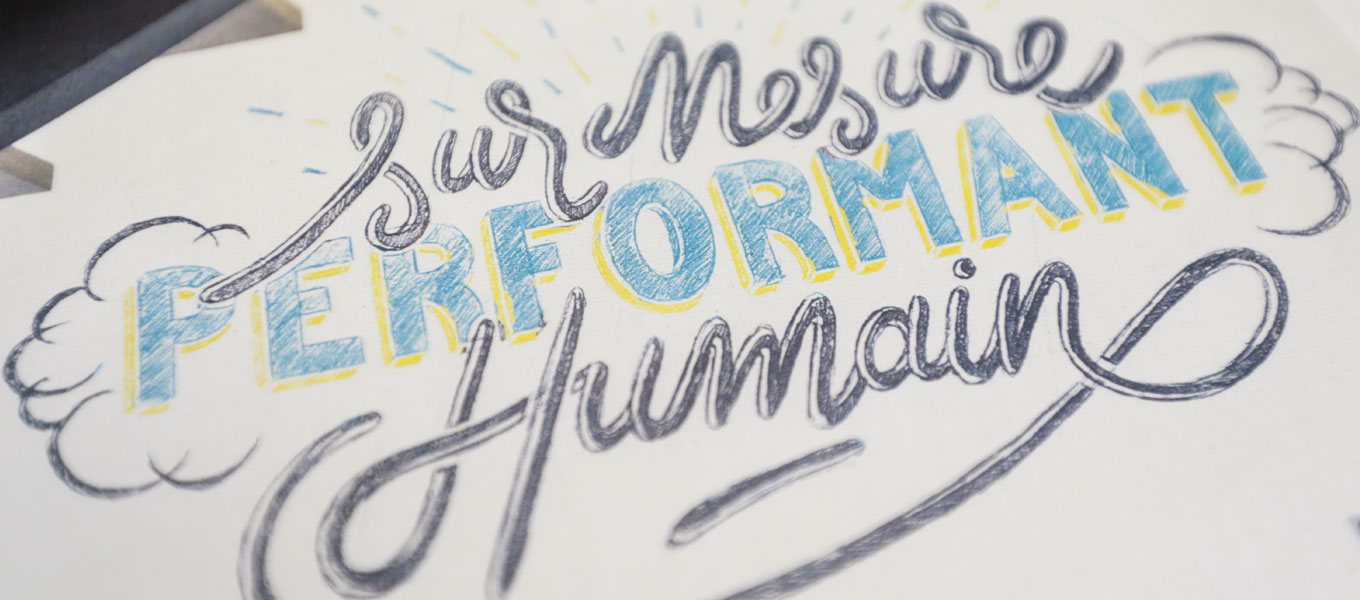 Sur Mesure
PERFORMANT
Humain